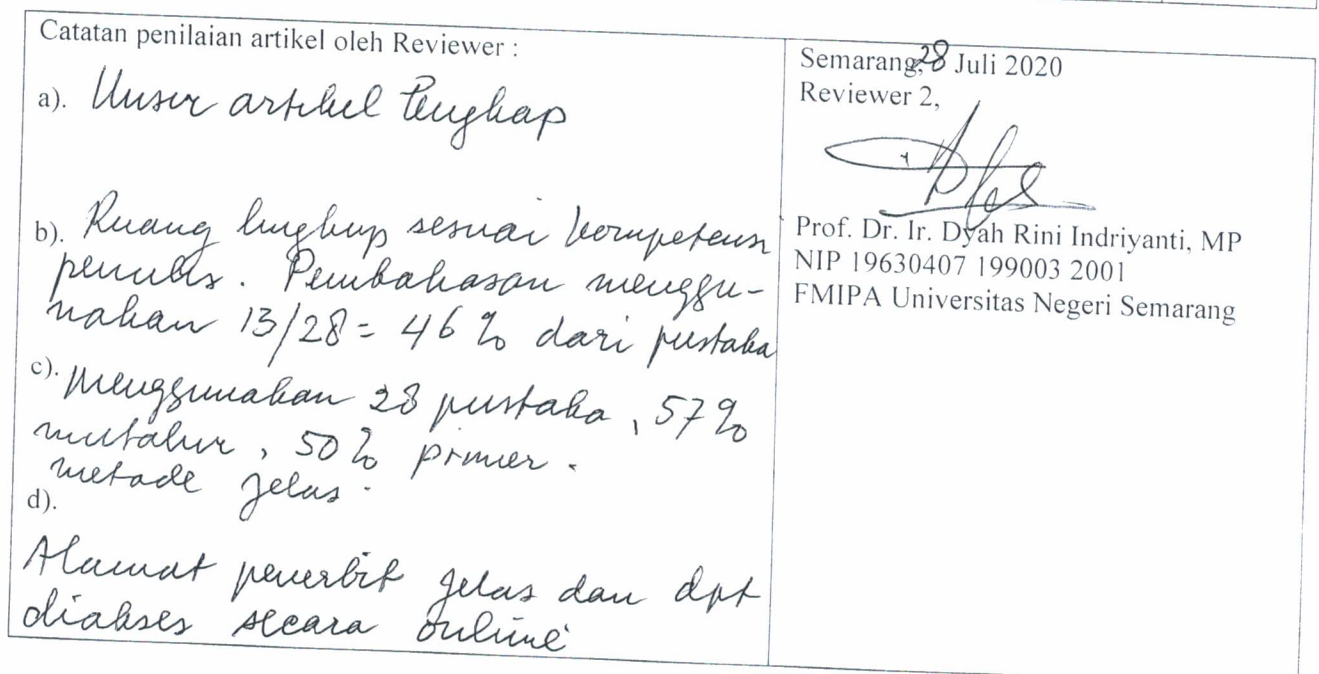 Catatan penilaian artikel oleh Reviewer :
a). Unsur artikel lengkap
b). Ruang lingkup sesuai kompetensi
penulis. Pembahasan menggu-
nakan 13/28 = 46% dari pustaka
c). menggunakan 28 pustaka, 57%
mutahir, 50% primer.
metode jelas.
d).
Alamat penerbit jelas dan dpt
diakses secara online
Semarang, 28 Juli 2020
Reviewer 2,
Prof. Dr. Ir. Dyah Rini Indriyanti, MP
NIP 19630407 199003 2001
FMIPA Universitas Negeri Semarang